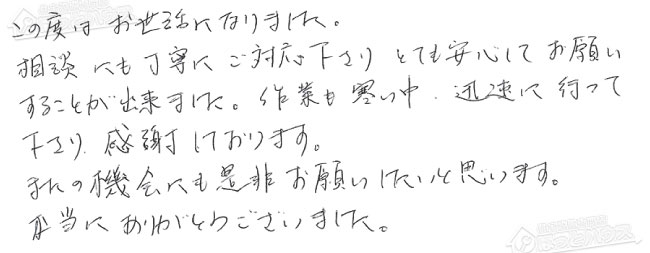 この度は お世話になりました。
相談 にも丁寧に ご対応下さり とても安心して お願い
することが出来ました。作業も 寒い中、迅速に 行って
下さり、感謝しております。
またの機会にも是非 お願いしたいと思います。
本当に ありがとうございました。